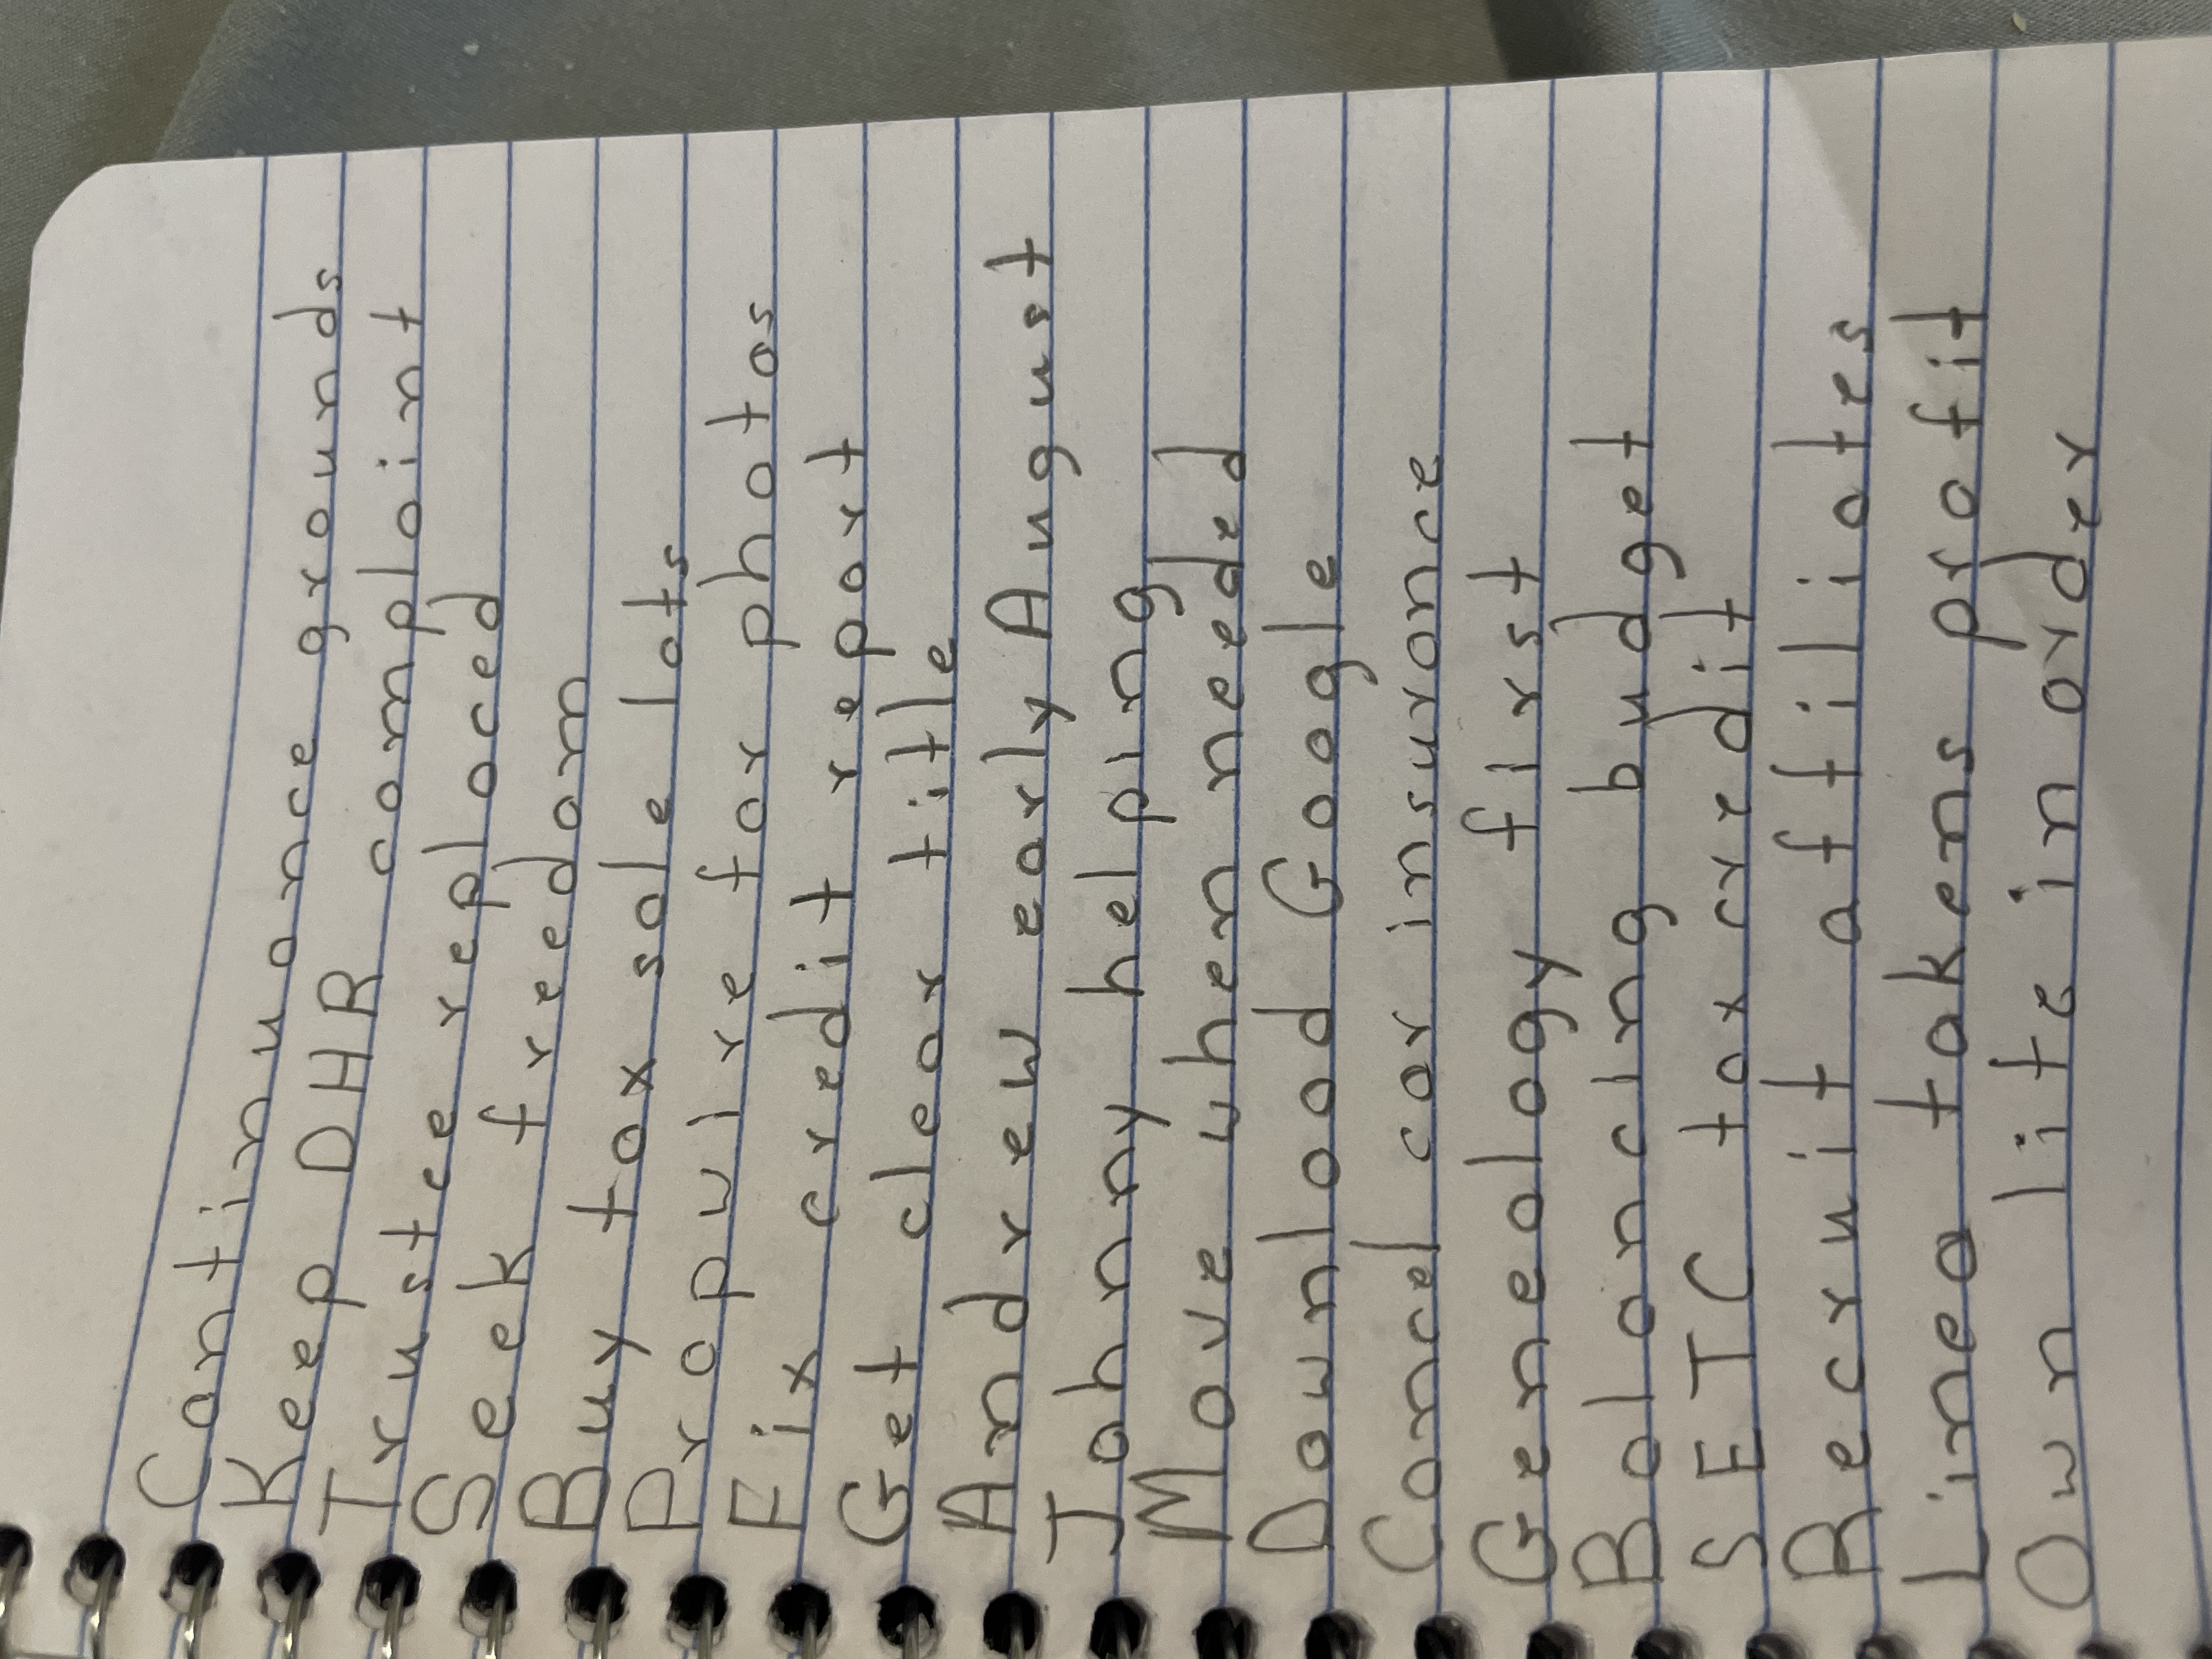 Continuance grounds
Keep DHR complaint
Trustee replaced
Seek freedom
Buy tax sale lots
Propwire for photos
Fix credit report
Get clear title
Andrew early August
Johnny helping
Move when needed
Download Google
Cancel car insurance
Genealogy first
Balancing budget
SETC tax credit
Recruit affiliates
Linea tokens profit
Own lite in order